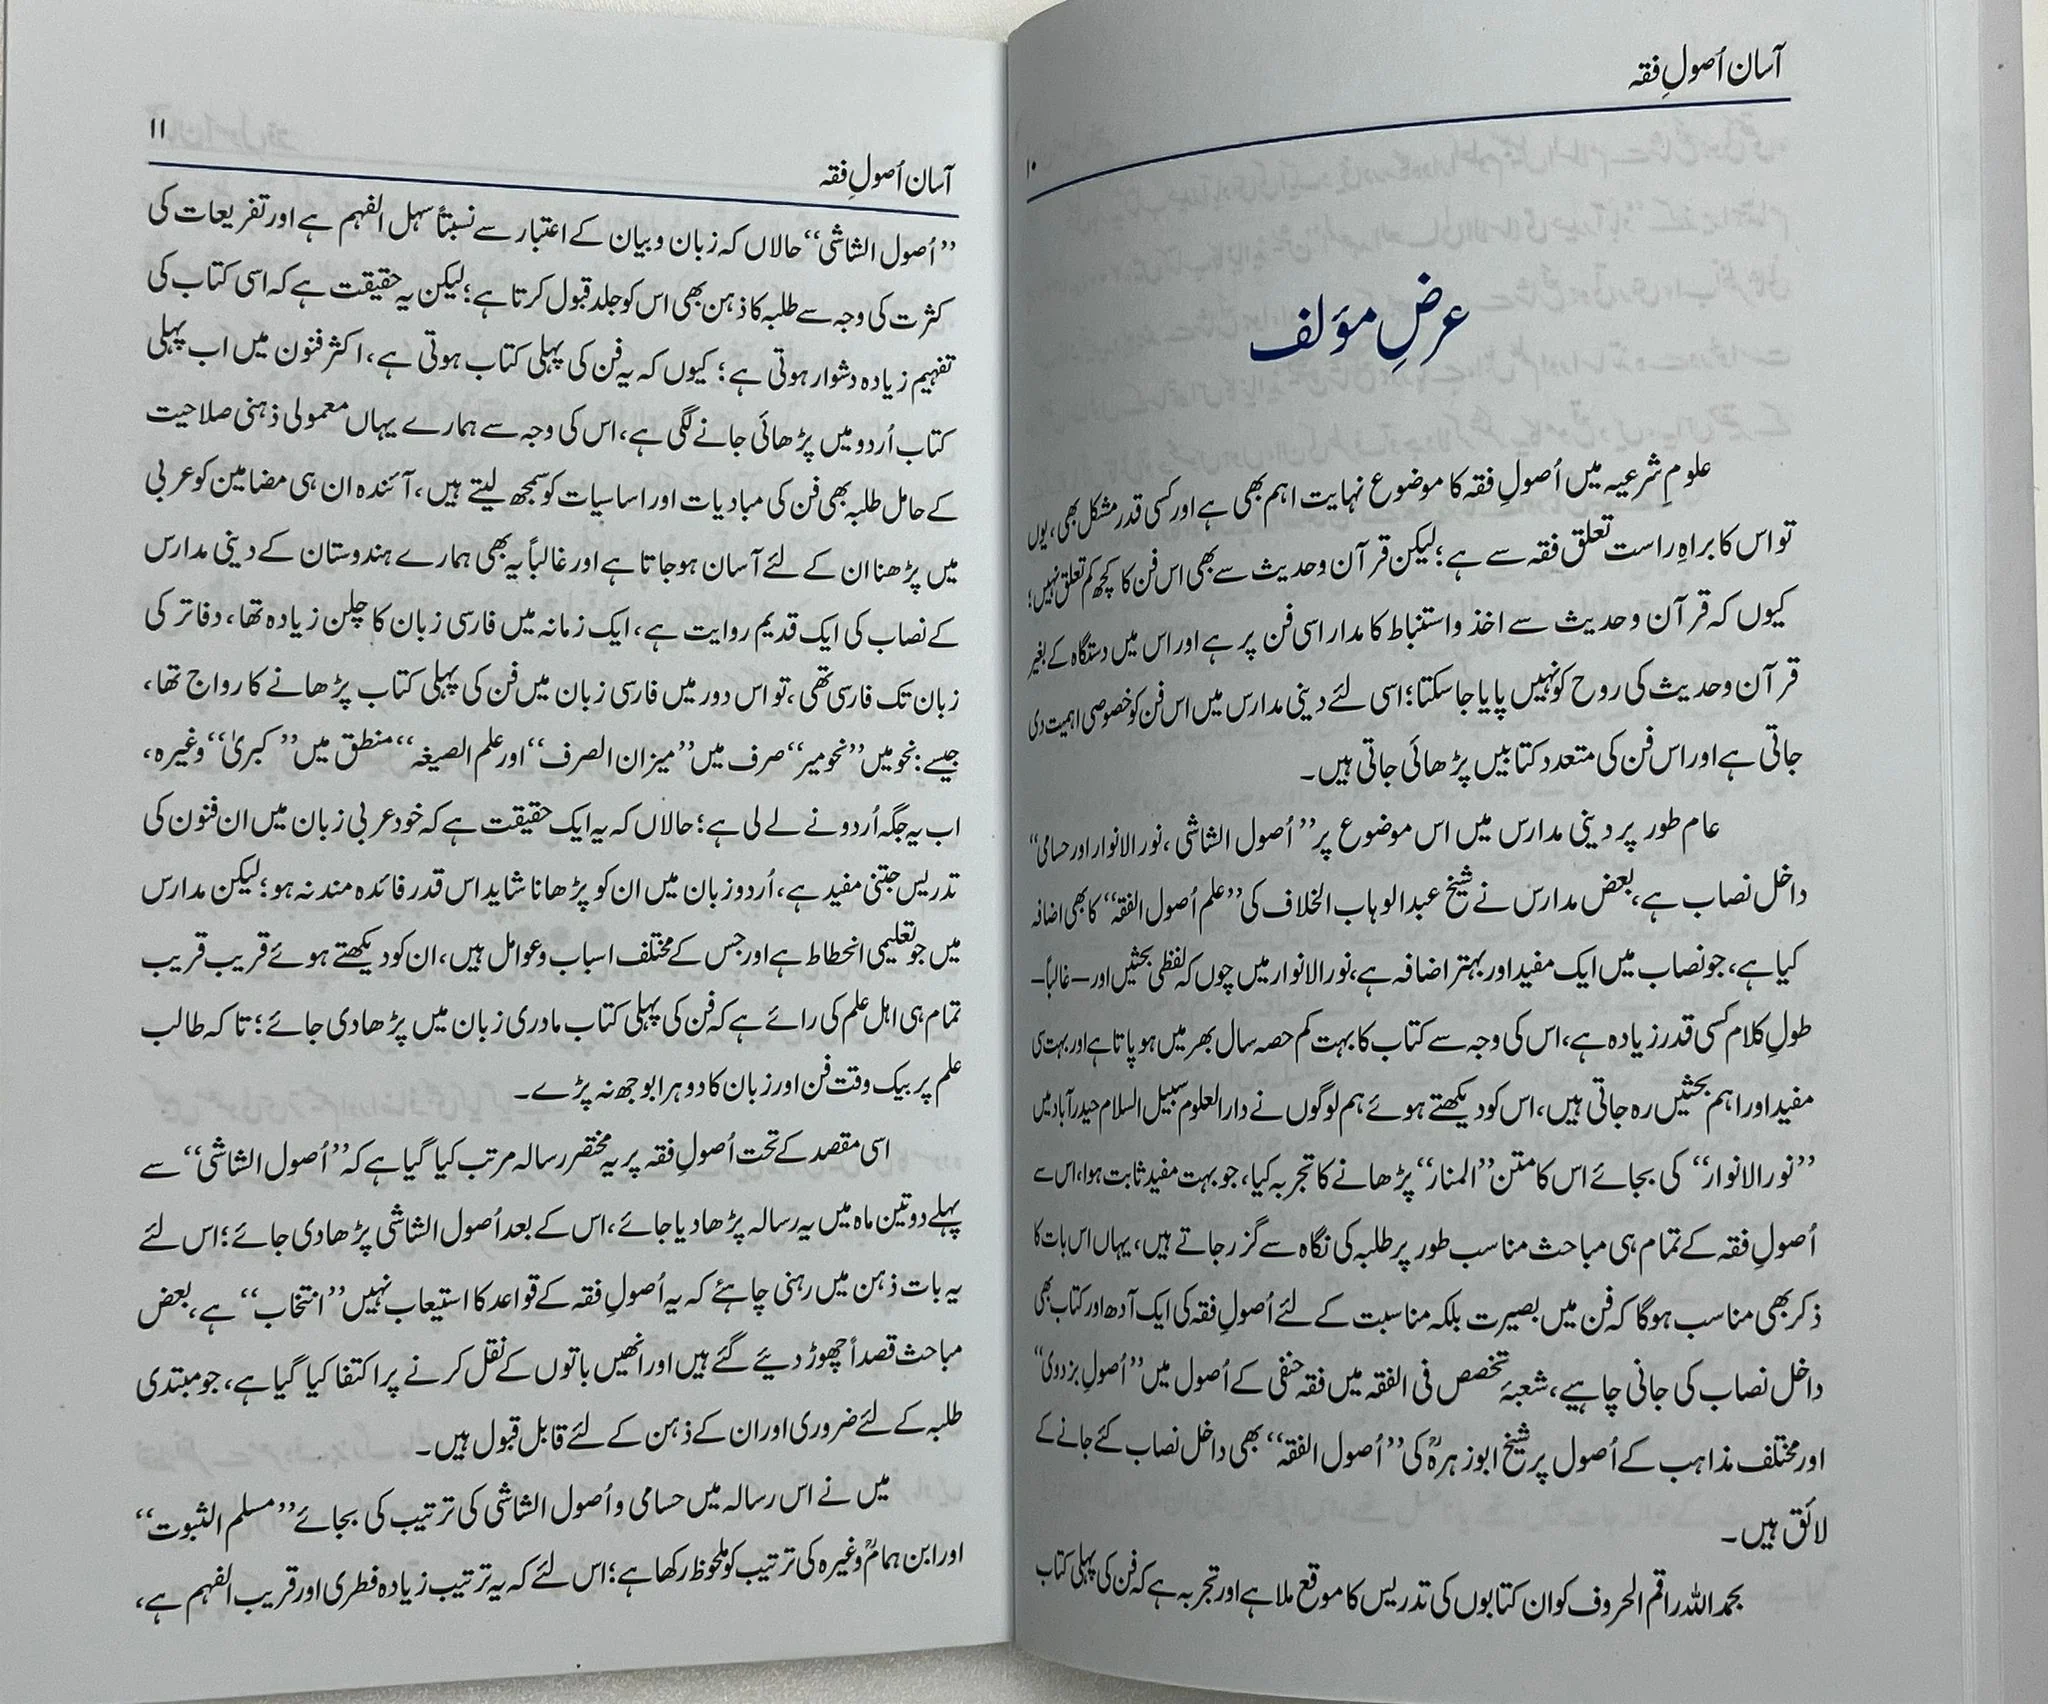 آسان اُصولِ فقہ
۱۰
عرضِ مؤلف
علومِ شرعیہ میں اُصولِ فقہ کا موضوع نہایت اہم بھی ہے اور کسی قدر مشکل بھی، یوں
تو اس کا براہِ راست تعلق فقہ سے ہے؛ لیکن قرآن وحدیث سے بھی اس فن کا کچھ کم تعلق نہیں؛
کیوں کہ قرآن وحدیث سے اخذ واستنباط کا مدار اسی فن پر ہے اور اس میں دستگاہ کے بغیر
قرآن وحدیث کی روح کو نہیں پایا جاسکتا؛ اسی لئے دینی مدارس میں اس فن کو خصوصی اہمیت دی
جاتی ہے اور اس فن کی متعدد کتابیں پڑھائی جاتی ہیں۔
عام طور پر دینی مدارس میں اس موضوع پر ’’اُصول الشاشی، نورالانوار اور حسامی‘‘
داخل نصاب ہے، بعض مدارس نے شیخ عبدالوہاب الخلاف کی ’’علم اُصول الفقہ‘‘ کا بھی اضافہ
کیا ہے، جو نصاب میں ایک مفید اور بہتر اضافہ ہے، نورالانوار میں چوں کہ لفظی بحثیں اور – غالباً –
طولِ کلام کسی قدر زیادہ ہے، اس کی وجہ سے کتاب کا بہت کم حصہ سال بھر میں ہو پاتا ہے اور بہت سی
مفید اور اہم بحثیں رہ جاتی ہیں، اس کو دیکھتے ہوئے ہم لوگوں نے دارالعلوم سبیل السلام حیدرآباد میں
’’نورالانوار‘‘ کی بجائے اس کا متن ’’المنار‘‘ پڑھانے کا تجربہ کیا، جو بہت مفید ثابت ہوا، اس سے
اُصولِ فقہ کے تمام ہی مباحث مناسب طور پر طلبہ کی نگاہ سے گزر جاتے ہیں، یہاں اس بات کا
ذکر بھی مناسب ہوگا کہ فن میں بصیرت بلکہ مناسبت کے لئے اُصولِ فقہ کی ایک آدھ اور کتاب بھی
داخل نصاب کی جانی چاہیے، شعبۂ تخصص فی الفقہ میں فقہ حنفی کے اُصول میں ’’اُصولِ بزدوی‘‘
اور مختلف مذاہب کے اُصول پر شیخ ابوزہرہؒ کی ’’اُصول الفقہ‘‘ بھی داخل نصاب کئے جانے کے
لائق ہیں۔
بحمداللہ راقم الحروف کو ان کتابوں کی تدریس کا موقع ملا ہے اور تجربہ ہے کہ فن کی پہلی کتاب
۱۱
آسان اُصولِ فقہ
’’اُصول الشاشی‘‘ حالاں کہ زبان وبیان کے اعتبار سے نسبتاً سہل الفہم ہے اور تفریعات کی
کثرت کی وجہ سے طلبہ کا ذہن بھی اس کو جلد قبول کرتا ہے؛ لیکن یہ حقیقت ہے کہ اسی کتاب کی
تفہیم زیادہ دشوار ہوتی ہے؛ کیوں کہ یہ فن کی پہلی کتاب ہوتی ہے، اکثر فنون میں اب پہلی
کتاب اُردو میں پڑھائی جانے لگی ہے، اس کی وجہ سے ہمارے یہاں معمولی ذہنی صلاحیت
کے حامل طلبہ بھی فن کی مبادیات اور اساسیات کو سمجھ لیتے ہیں، آئندہ ان ہی مضامین کو عربی
میں پڑھنا ان کے لئے آسان ہوجاتا ہے اور غالباً یہ بھی ہمارے ہندوستان کے دینی مدارس
کے نصاب کی ایک قدیم روایت ہے، ایک زمانہ میں فارسی زبان کا چلن زیادہ تھا، دفاتر کی
زبان تک فارسی تھی، تو اس دور میں فارسی زبان میں فن کی پہلی کتاب پڑھانے کا رواج تھا،
جیسے: نحو میں ’’نحومیر‘‘ صرف میں ’’میزان الصرف‘‘ اور علم الصیغہ‘‘ منطق میں ’’کبریٰ‘‘ وغیرہ،
اب یہ جگہ اُردو نے لے لی ہے؛ حالاں کہ یہ ایک حقیقت ہے کہ خود عربی زبان میں ان فنون کی
تدریس جتنی مفید ہے، اُردو زبان میں ان کو پڑھانا شاید اس قدر فائدہ مند نہ ہو؛ لیکن مدارس
میں جو تعلیمی انحطاط ہے اور جس کے مختلف اسباب وعوامل ہیں، ان کو دیکھتے ہوئے قریب قریب
تمام ہی اہل علم کی رائے ہے کہ فن کی پہلی کتاب مادری زبان میں پڑھادی جائے؛ تاکہ طالب
علم پر بیک وقت فن اور زبان کا دوہرا بوجھ نہ پڑے۔
اسی مقصد کے تحت اُصولِ فقہ پر یہ مختصر رسالہ مرتب کیا گیا ہے کہ ’’اُصول الشاشی‘‘ سے
پہلے دو تین ماہ میں یہ رسالہ پڑھادیا جائے، اس کے بعد اُصول الشاشی پڑھادی جائے؛ اس لئے
یہ بات ذہن میں رہنی چاہئے کہ یہ اُصولِ فقہ کے قواعد کا استیعاب نہیں ’’انتخاب‘‘ ہے، بعض
مباحث قصداً چھوڑ دیئے گئے ہیں اور انھیں باتوں کے نقل کرنے پر اکتفا کیا گیا ہے، جو مبتدی
طلبہ کے لئے ضروری اور ان کے ذہن کے لئے قابل قبول ہیں۔
میں نے اس رسالہ میں حسامی واُصول الشاشی کی ترتیب کی بجائے ’’مسلم الثبوت‘‘
اور ابن ہمامؒ وغیرہ کی ترتیب کو ملحوظ رکھا ہے؛ اس لئے کہ یہ ترتیب زیادہ فطری اور قریب الفہم ہے،